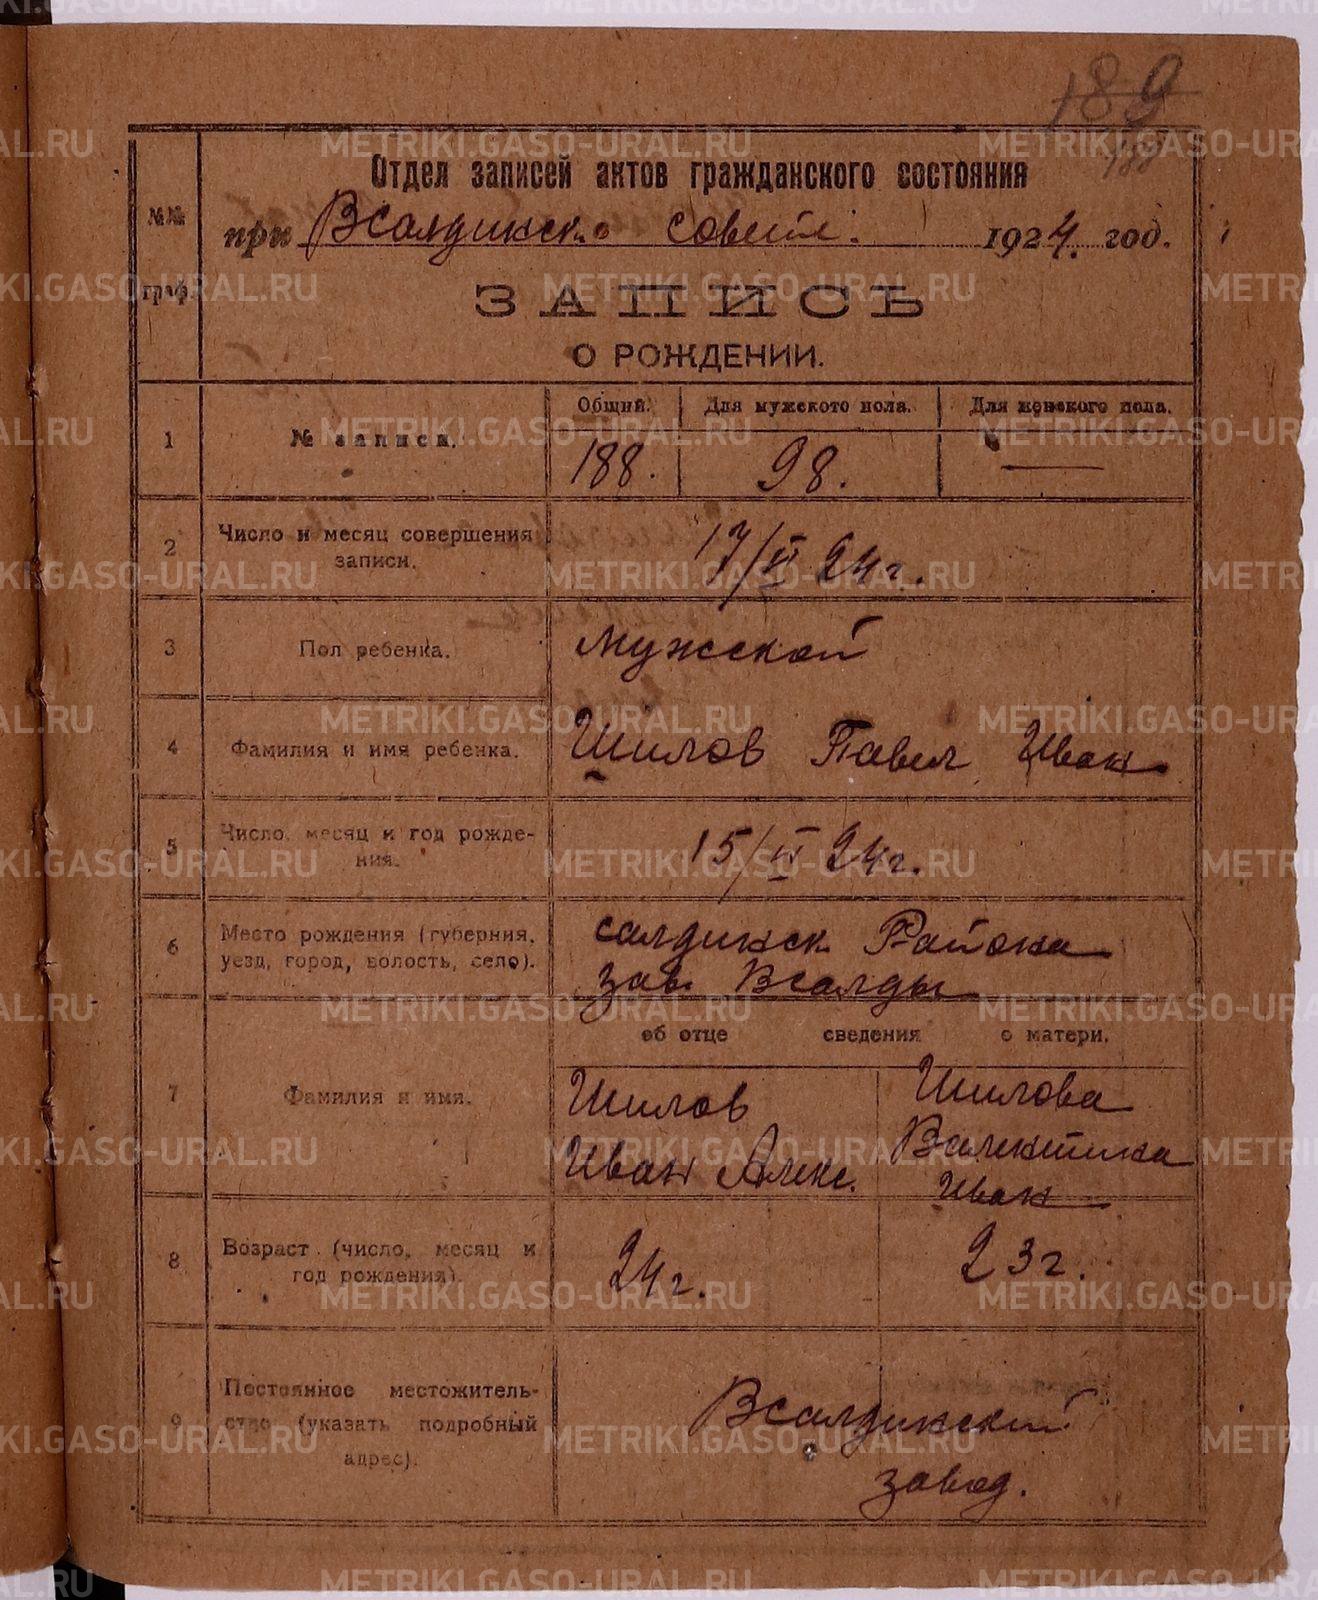 189
188
Отдел записей актов гражданского состояния
№№ граф.
при ВСалдинск. совете. 1924. год.
ЗАПИСЬ
О РОЖДЕНИИ.
Общий. Для мужского пола. Для женского пола.
1 № записи. 188. 98. —
2 Число и месяц совершения
записи. 17/VI 24г.
3 Пол ребенка. Мужской
4 Фамилия и имя ребенка. Шилов Павел Иван
5 Число, месяц и год рожде-
ния. 15/VI 24г.
6 Место рождения (губерния, Салдинск Района
уезд, город, волость, село). зав. ВСалды
об отце сведения о матери.
7 Фамилия и имя. Шилов Шилова
Иван Алекс. Валентина
Иван
8 Возраст (число, месяц и
год рождения). 24г. 23г.
9 Постоянное местожитель-
ство (указать подробный
адрес). ВСалдинский
завод.
METRIKI.GASO-URAL.RU